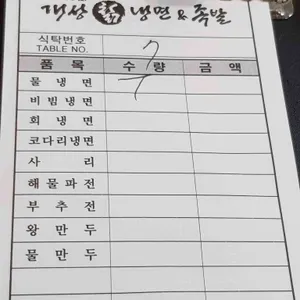 개상 냉면&족발
식탁번호
TABLE NO. 7
품목 수량 금액
물냉면
비빔냉면
회냉면
코다리냉면
사리
해물파전
부추전
왕만두
물만두